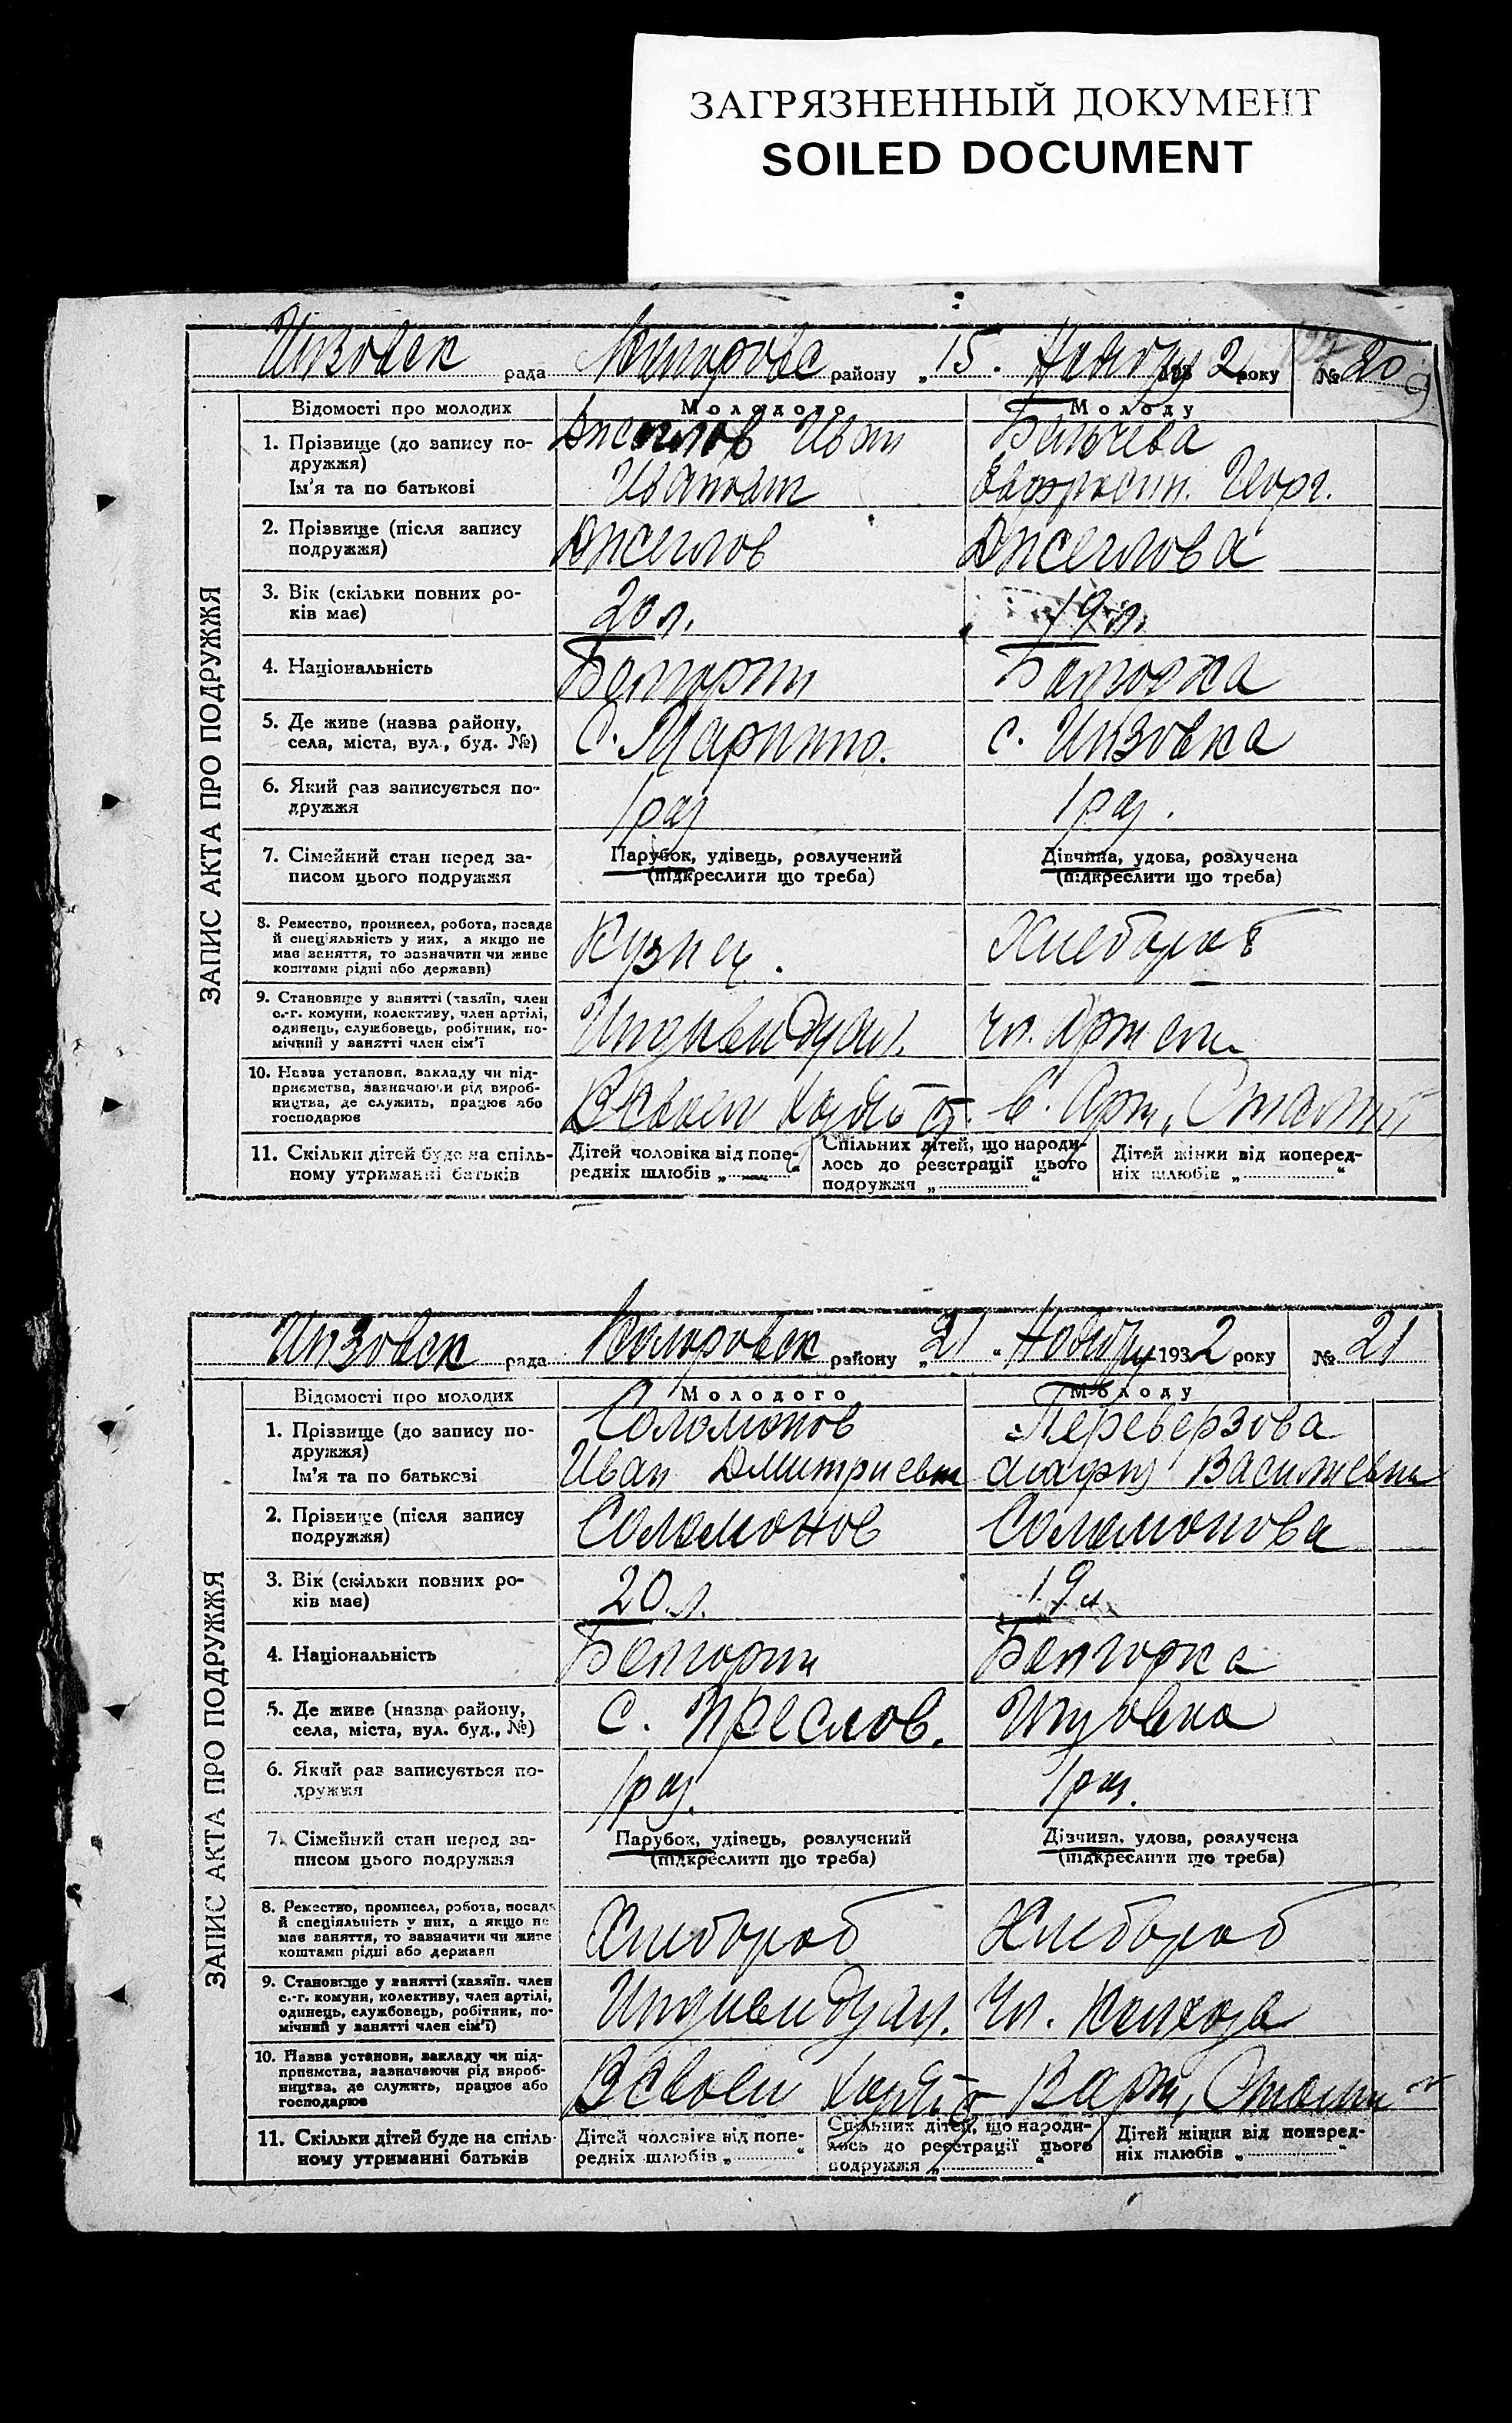 ЗАГРЯЗНЕННЫЙ ДОКУМЕНТ
SOILED DOCUMENT
Инзовск рада району „15. Ноября 193 2 року № 20
ЗАПИС АКТА ПРО ПОДРУЖЖЯ
Відомості про молодих Молодого Молоду
1. Прізвище (до запису по-
дружжя)
Ім'я та по батькові
Джеглов Иван
2. Прізвище (після запису
подружжя)
Джеглов Джеглова
3. Вік (скільки повних ро-
ків має)
20 л. 19 л.
4. Національність Болгарин Болгорка
5. Де живе (назва району,
села, міста, вул., буд. №)
с. Инзовка
6. Який раз записується по-
дружжя
1 раз 1 раз.
7. Сімейний стан перед за-
писом цього подружжя
Парубок, удівець, розлучений
(підкреслити що треба)
Дівчина, удова, розлучена
(підкреслити що треба)
8. Ремество, промисел, робота, посада
й спеціяльність у них, а якщо не
має заняття, то зазначити чи живе
коштами рідні або держави)
Кузнец. Хлебороб
9. Становище у занятті (хазяїн, член
с.-г. комуни, колективу, член артілі,
одинець, службовець, робітник, по-
мічний у занятті член сім'ї
Индивидуал. чл. артели
10. Назва установи, закладу чи під-
приємства, зазначаючи рід вироб-
ництва, де служить, працює або
господарює
В своем
11. Скільки дітей буде на спіль-
ному утриманні батьків
Дітей чоловіка від попе-
редніх шлюбів „ “
Спільних дітей, що народи-
лось до реєстрації цього
подружжя „ “
Дітей жінки від поперед-
ніх шлюбів „ “
Инзовск рада району „21“ Ноября 193 2 року № 21
ЗАПИС АКТА ПРО ПОДРУЖЖЯ
Відомості про молодих Молодого Молоду
1. Прізвище (до запису по-
дружжя)
Ім'я та по батькові
Соломонов Переверзова
Иван Дмитриевич
2. Прізвище (після запису
подружжя)
Соломонов Соломонова
3. Вік (скільки повних ро-
ків має)
20 л. 19 л
4. Національність Болгорин Болгорка
5. Де живе (назва району,
села, міста, вул. буд., №)
с. Преслов. Инзовка
6. Який раз записується по-
дружжя
1 раз. 1 раз.
7. Сімейний стан перед за-
писом цього подружжя
Парубок, удівець, розлучений
(підкреслити що треба)
Дівчина, удова, розлучена
(підкреслити що треба)
8. Ремество, промисел, робота, посада
й спеціяльність у них, а якщо не
має заняття, то зазначити чи живе
коштами рідні або держави
Хлебороб Хлебороб
9. Становище у занятті (хазяїн. член
с.-г. комуни, колективу, член артілі,
одинець, службовець, робітник, по-
мічний у занятті член сім'ї)
Индивидуал. Чл. колхоза
10. Назва установи, закладу чи під-
приємства, зазначаючи рід вироб-
ництва, де служить, працює або
господарює
В своем
11. Скільки дітей буде на спіль-
ному утриманні батьків
Дітей чоловіка від попе-
редніх шлюбів „ “
Спільних дітей, що народи-
лось до реєстрації цього
подружжя „ “
Дітей жінки від поперед-
ніх шлюбів „ “